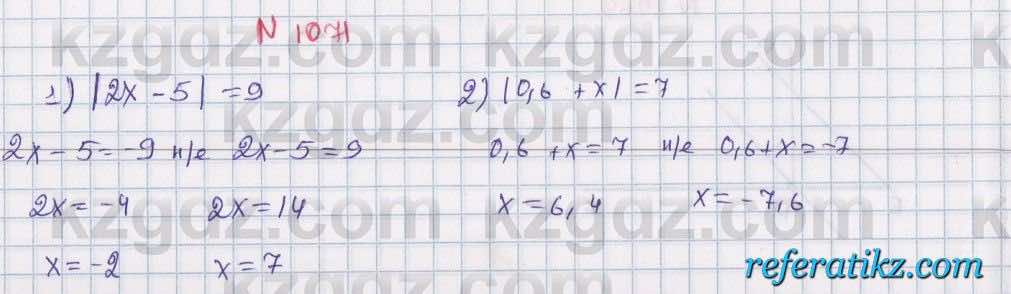 N 1071
1) |2x - 5| = 9    2) |0,6 + x| = 7
2x - 5 = -9 н/е 2x - 5 = 9    0,6 + x = 7 н/е 0,6 + x = -7
2x = -4    2x = 14    x = 6,4    x = -7,6
x = -2    x = 7
kzgdz.com
kzgdz.com
kzgdz.com
referatikz.com